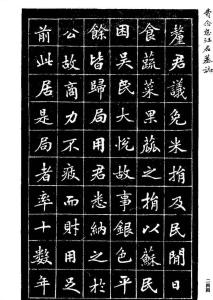 費念慈江君墓誌
釐君議免米捐及民間日
食蔬菜果蓏之捐以蘇民
困吳民大悅故事銀色平
餘皆歸局用君悉納之於
公故商力不疲而財用足
前此居是局者率十數年